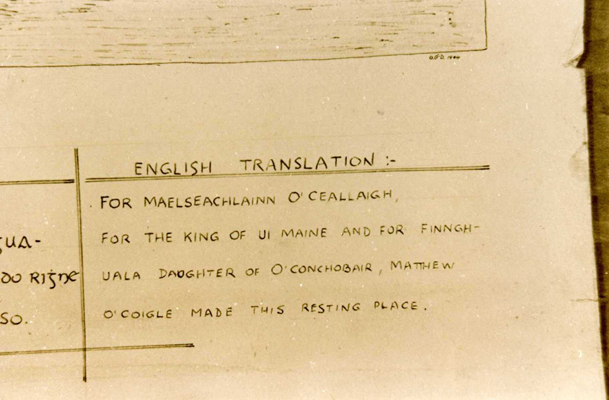 ENGLISH TRANSLATION :-
FOR MAELSEACHLAINN O'CEALLAIGH,
FOR THE KING OF UI MAINE AND FOR FINNGH-
UALA DAUGHTER OF O'CONCHOBAIR, MATTHEW
O'COIGLE MADE THIS RESTING PLACE.
DO RIĠNE
SO.